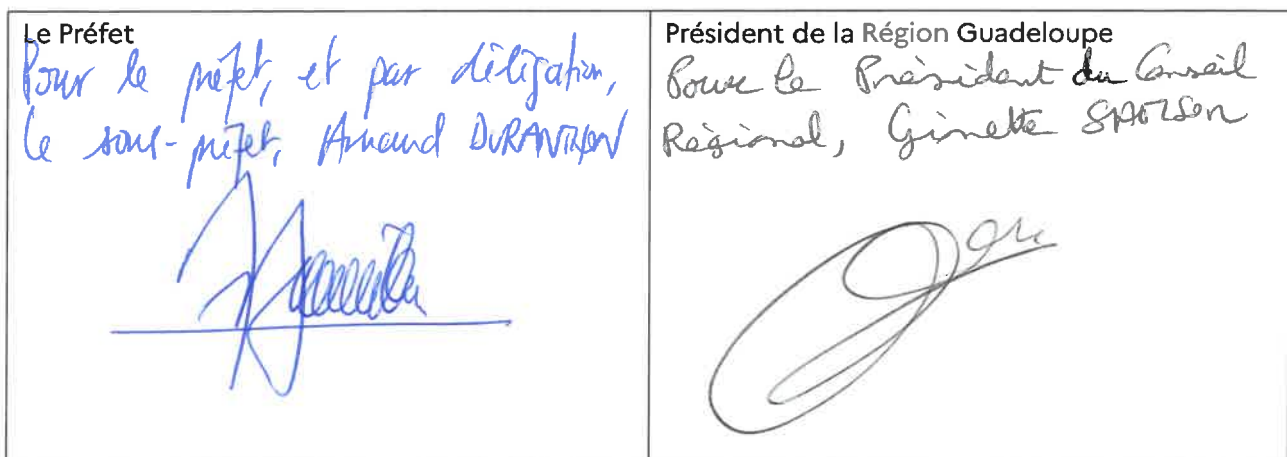 Le Préfet
Pour le préfet, et par déligation,
le sous-préfet, Arnaud DURANTHON
Président de la Région Guadeloupe
Pour le Président du Conseil
Régional, Ginette